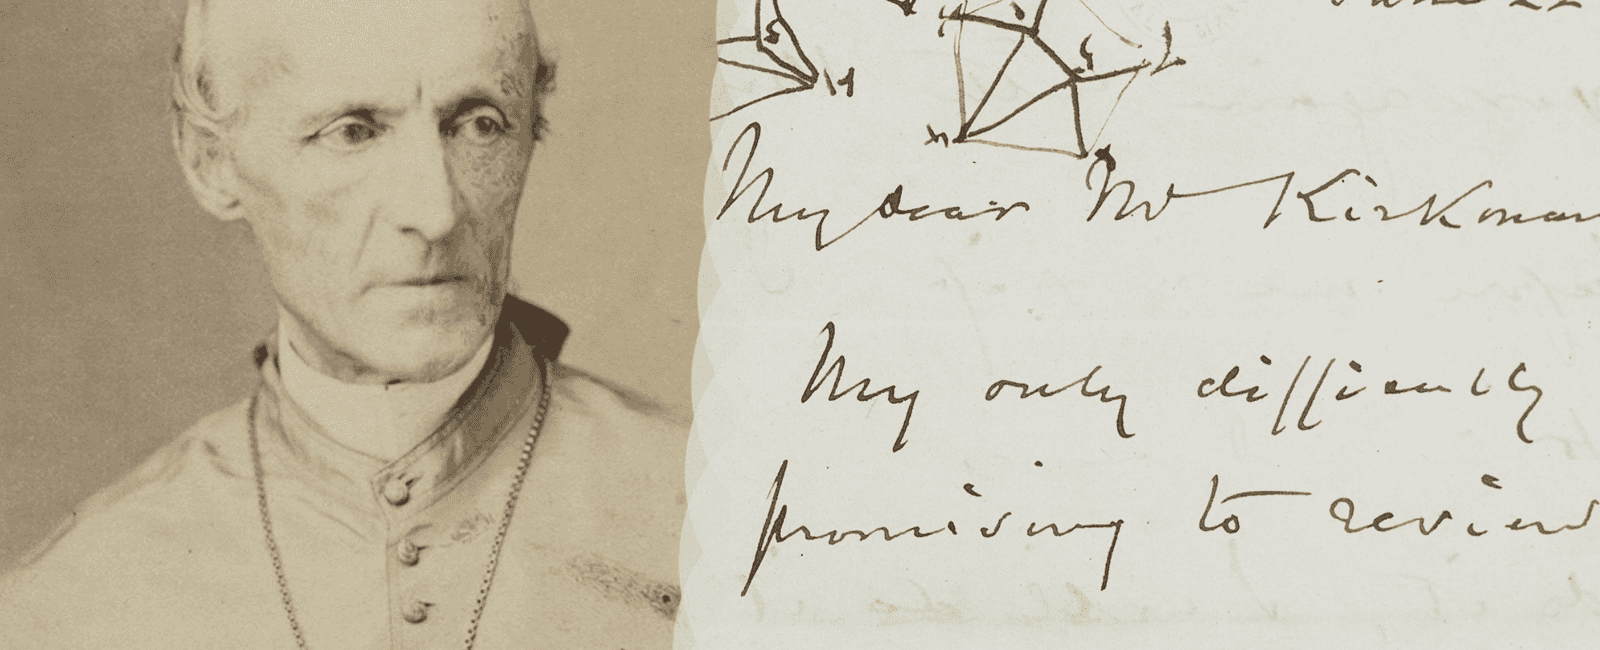 My dear Mr Kirkman
My only difficulty
promising to review